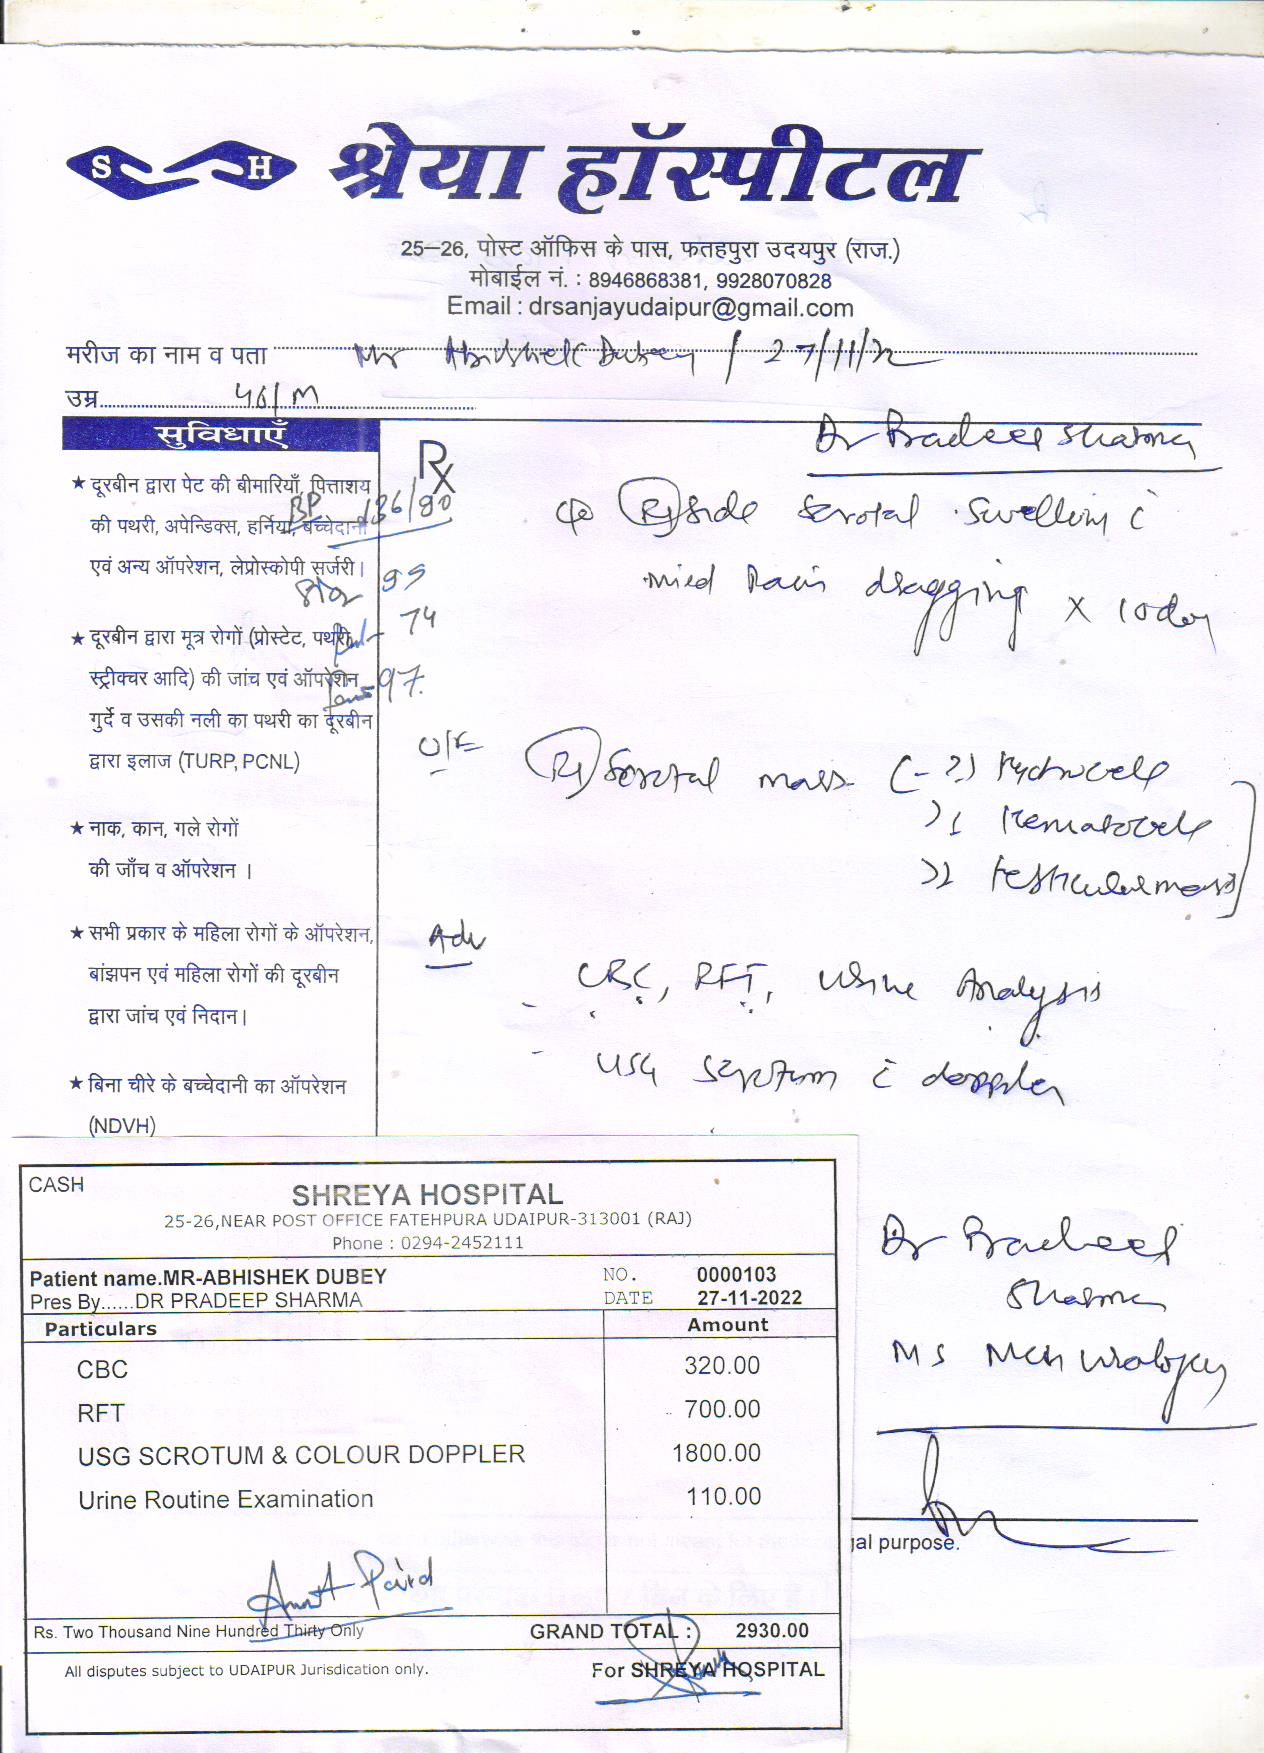 S H श्रेया हॉस्पीटल
25–26, पोस्ट ऑफिस के पास, फतहपुरा उदयपुर (राज.)
मोबाईल नं. : 8946868381, 9928070828
Email : drsanjayudaipur@gmail.com
मरीज का नाम व पता Mr Abhishek Dubey / 27/11/22
उम्र 46/M
सुविधाएँ
★ दूरबीन द्वारा पेट की बीमारियाँ, पित्ताशय
की पथरी, अपेन्डिक्स, हर्निया, बच्चेदानी
एवं अन्य ऑपरेशन, लेप्रोस्कोपी सर्जरी।
★ दूरबीन द्वारा मूत्र रोगों (प्रोस्टेट, पथरी,
स्ट्रीक्चर आदि) की जांच एवं ऑपरेशन
गुर्दे व उसकी नली का पथरी का दूरबीन
द्वारा इलाज (TURP, PCNL)
★ नाक, कान, गले रोगों
की जाँच व ऑपरेशन ।
★ सभी प्रकार के महिला रोगों के ऑपरेशन,
बांझपन एवं महिला रोगों की दूरबीन
द्वारा जांच एवं निदान।
★ बिना चीरे के बच्चेदानी का ऑपरेशन
(NDVH)
Rx
BP 136/80
99
74
97.
Dr Pradeep Sharma
c/o (Rt) side scrotal swelling c
mild pain dragging x 10 day
O/E (Rt) Scrotal mass (- ?) Hydrocele
Hematocele
testicular mass
Adv
- CBC, RFT, Urine Analysis
- USG scrotum c doppler
Dr Pradeep
Sharma
MS MCH Urology
gal purpose.
CASH
SHREYA HOSPITAL
25-26,NEAR POST OFFICE FATEHPURA UDAIPUR-313001 (RAJ)
Phone : 0294-2452111
Patient name.MR-ABHISHEK DUBEY NO. 0000103
Pres By......DR PRADEEP SHARMA DATE 27-11-2022
Particulars Amount
CBC 320.00
RFT 700.00
USG SCROTUM & COLOUR DOPPLER 1800.00
Urine Routine Examination 110.00
Amt Paid
Rs. Two Thousand Nine Hundred Thirty Only GRAND TOTAL : 2930.00
All disputes subject to UDAIPUR Jurisdication only. For SHREYA HOSPITAL